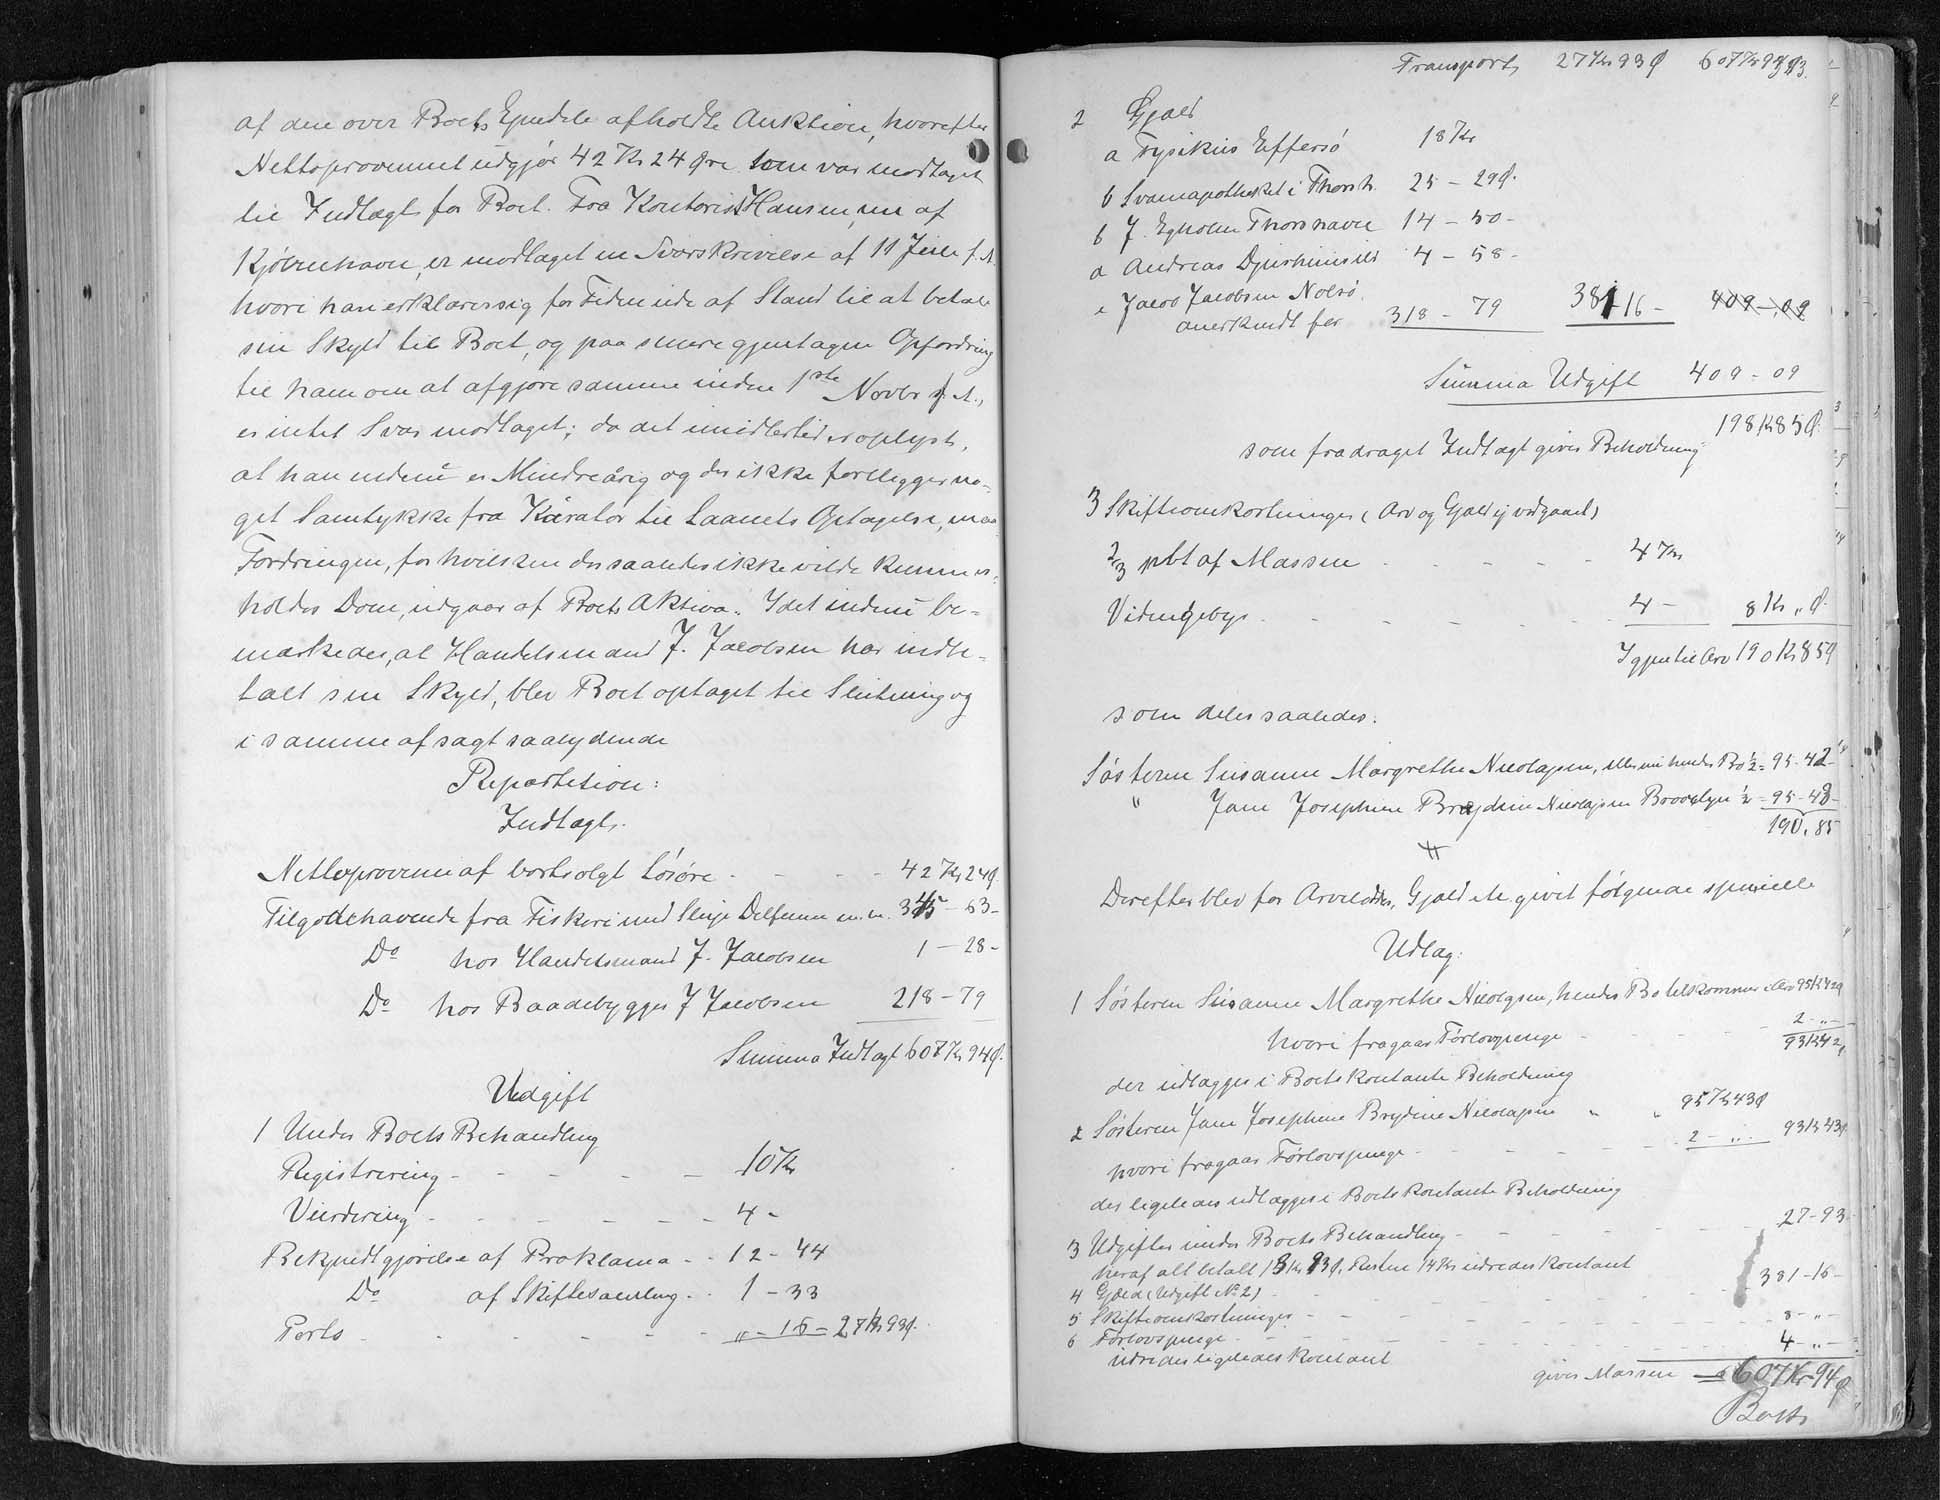 af den over Boets Ejendele afholdte Auktion, hvorefter
Nettoprovenuet udgjør 42 Kr 24 Øre som var modtaget
til Indtægt for Boet. Fra Kontorist Hansen, nu af
Kjøbenhavn, er modtaget en Svarskrivelse af 11 Juli f. A.
hvori han erklærer sig for Tiden ude af Stand til at betale
sin Skyld til Boet, og paa senere gjentagen Opfordring
til ham om at afgjøre samme inden 1ste Novbr f. A.,
er intet Svar modtaget; da det imidlertid er oplyst,
at han endnu er Mindreårig og der ikke forelligger no=
get Samtykke fra Kurator til Laanets Optagelse, maa
Fordringen, for hvilken der saaledes ikke vilde kunne er=
holdes Dom, udgaar af Boets Aktiva. Idet endnu be=
mærkedes, at Handelsmand J. Jacobsen har indbe=
talt sin Skyld, blev Boet optaget til Slutning og
i samme afsagt saalydende
Repartition:
Indtægt.
Nettoprovenu af bortsolgt Løsøre - - - 42 Kr 24 Ø.
Tilgodehavende fra Fiskeri med Slup Delfinen m.m. 345 - 63 -
Do hos Handelsmand J. Jacobsen 1 - 28 -
Do hos Baadebygger J Jacobsen 218 - 79
Summa Indtægt 607 Kr 94 Ø.
Udgift
1 Under Boets Behandling
Registrering - - - - 10 Kr
Vurdering - - - - - 4 -
Bekjendtgjørelse af Proklama - - 12 - 44
Do af Skiftesamling - - 1 - 33
Porto - - - - - „ - 16 = 27 Kr 93 Ø.
Transport 27 Kr 93 Ø 607 Kr 94 Ø
2 Gjæld
a Fysikus Effersö 18 Kr
b Svaneapotheket i Thorsh. 25 - 29 Ø.
b J. Egholm Thorshavn 14 - 50 -
a Andreas 4 - 58 -
e Jacob Jacobsen Nolsö
anerkjendt for 318 - 79 381 - 16 - 409 - 09
Summa Udgift 409 - 09
som fradraget Indtægt giver Beholdning 198 Kr 85 Ø.
3 Skifteomkostninger (Arv og Gjæld ej vedgaaet)
2/3 pCt af Massen - - - - - 4 Kr
Vidnegebyr - - - - - - 4 - 8 Kr „ Ø.
Igjen til Arv 190 Kr 85 Ø
som deles saaledes:
Søsteren Susanne Margrethe Nicolajsen, eller nu hendes Bo 1/2 = 95 - 42
„ Jane Josephine Brydine Nicolajsen Brooklyn 1/2 = 95 - 43 -
190. 85
Derefter blev for Arvelodder, Gjæld etc. givet følgende specielle
Udlag:
1 Søsteren Susanne Margrethe Nicolajsen, hendes Bo tilkommer i Arv 95 Kr 42 Ø
hvori fragaar Førlovspenge - - - - - 2 - „ -
93 Kr 42
der udlægges i Boets kontante Beholdning
2 Søsteren Jane Josephine Brydine Nicolajsen „ „ 95 Kr 43 Ø
hvori fragaar Førlovspenge - - - - - 2 - „ - 93 Kr 43 Ø.
der ligeledes udlægges i Boets kontante Beholdning
3 Udgifter under Boets Behandling - - - - 27 - 93 -
heraf alt betalt 13 Kr 93 Ø, Resten 14 Kr udredes kontant
4 Gjæld (Udgift No 2) - - - - - - 381 - 16 -
5 Skifteomkostninger - - - - - - 8 - „ -
6 Førlovspenge - - - - - - 4 - „ -
udredes ligeledes kontant
giver Massen = 607 Kr 94 Ø
Boets